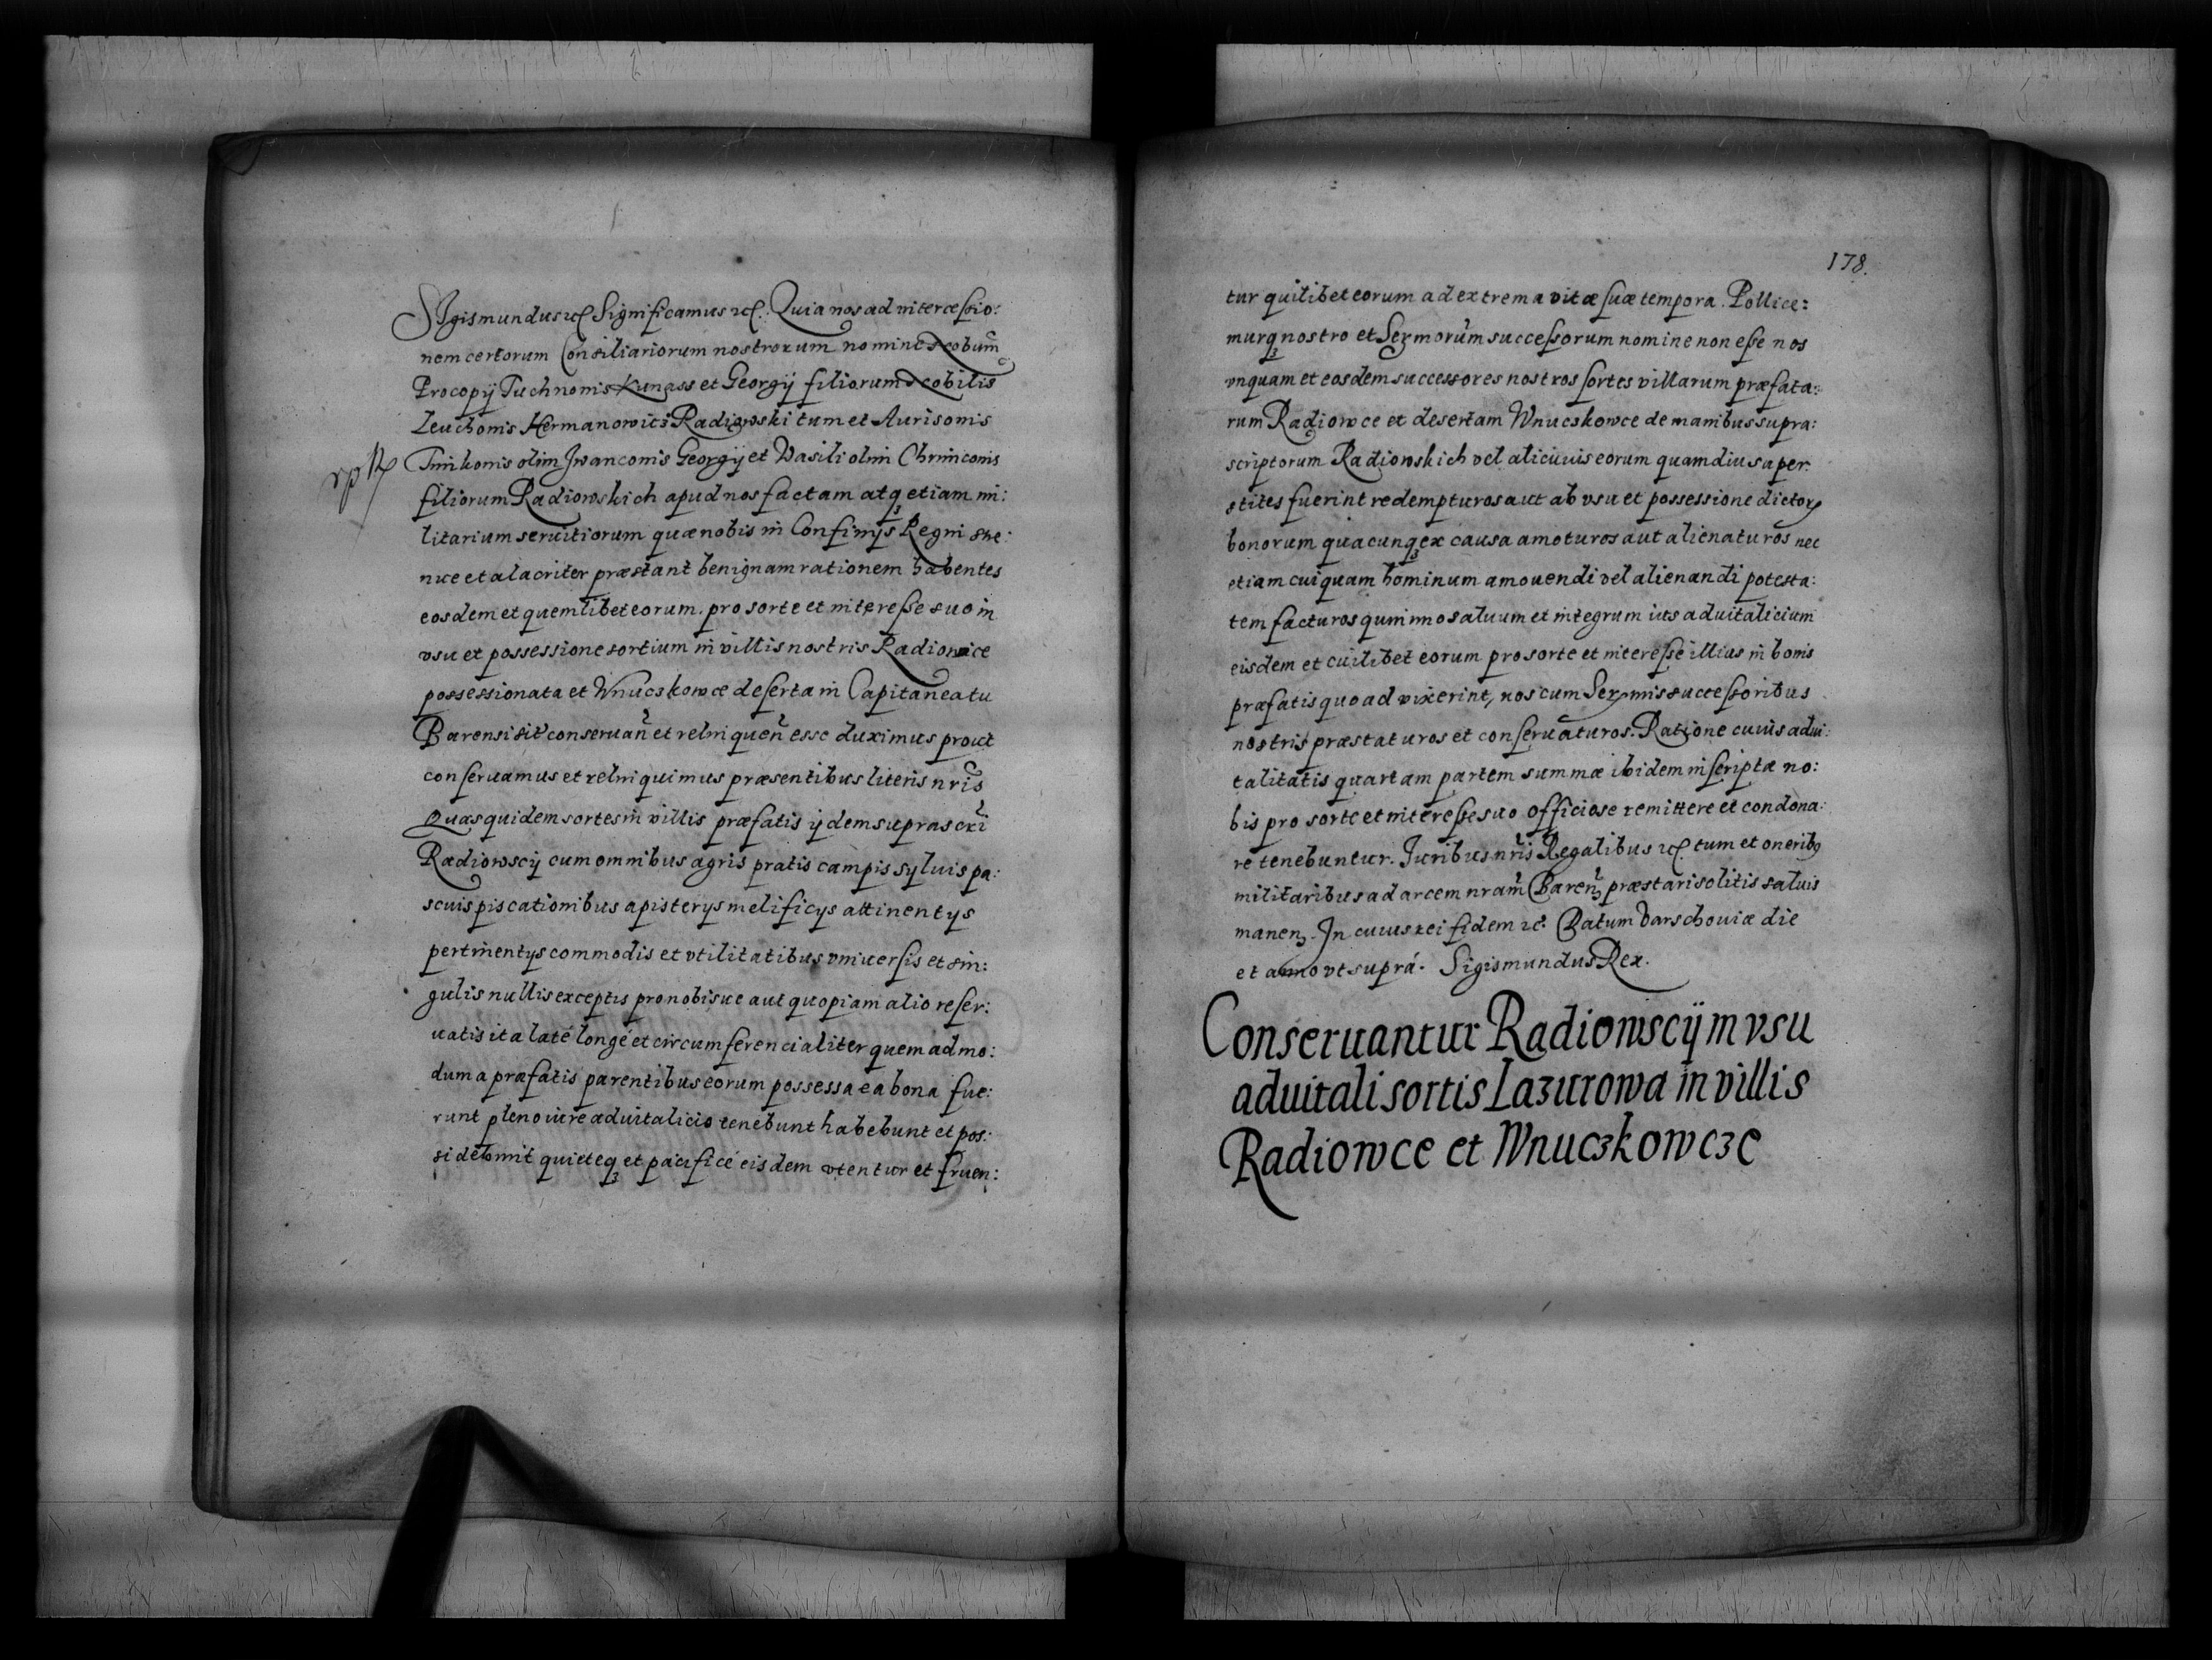 Sigismundus etc Significamus etc. Quia nos ad intercessio:
nem certorum Consiliariorum nostrorum nomine
Procopij Tuchnonis Kunass et Georgij filiorum
Leuchonis Hermanowicz Radiowski tum et Aurisonis
Timkonis olim Iwanconis Georgij et Wasili olim Chrinconis
filiorum Radiowskich apud nos factam atq etiam mi:
litarium seruitiorum quæ nobis in Confinijs Regni stre:
nue et alacriter præstant benignam rationem habentes
eosdem et quemlibet eorum pro sorte et interesse suo in
vsu et possessione sortium in villis nostris Radiowce
possessionata et Wnucskowce deserta in Capitaneatu
Barensi sit conseruan et relinquen esse duximus prout
conseruamus et relinquimus præsentibus literis nris
Quas quidem sortes in villis præfatis ijdem suprascri
Radiowscij cum omnibus agris pratis campis syluis pa:
scuis piscationibus apisterijs melificijs attinentijs
pertinentijs commodis et vtilitatibus vniuersis et sin:
gulis nullis exceptis pro nobisue aut quopiam alio reser:
uatis ita laté longé et circumferencialiter quemadmo:
dum a præfatis parentibus eorum possessa ea bona fue:
runt pleno iure aduitalicio tenebunt habebunt et pos:
sidebunt quieteq et pacificé eisdem vtentur et fruen:
178.
tur quilibet eorum ad extrema vitæ suæ tempora. Pollice:
murq nostro et Sermorum successorum nomine non esse nos
vnquam et eosdem successores nostros sortes villarum præfata:
rum Radiowce et desertam Wnucskowce de manibus supra:
scriptorum Radiowskich vel alicuius eorum quamdiu super:
stites fuerint redempturos aut ab vsu et possessione dictor
bonorum quacunq ex causa amoturos aut alienaturos nec
etiam cuiquam hominum amouendi vel alienandi potesta:
tem facturos quinimo saluum et integrum ius aduitalicium
eisdem et cuilibet eorum pro sorte et interesse illius in bonis
præfatis quoad vixerint, nos cum Sermis successoribus
nostris præstaturos et conseruaturos. Ratione cuius adui:
talitatis quartam partem summæ ibidem inscriptæ no:
bis pro sorte et interesse suo officiose remittere et condona:
re tenebuntur. Iuribus nris Regalibus etc tum et oneribus
militaribus ad arcem nram Baren præstari solitis saluis
manen. In cuius rei fidem etc. Datum Varschouiæ die
et anno vt suprá. Sigismundus Rex.
Conseruantur Radiowscij in vsu
aduitali sortis Lazurowa in villis
Radiowce et Wnuczkowcze